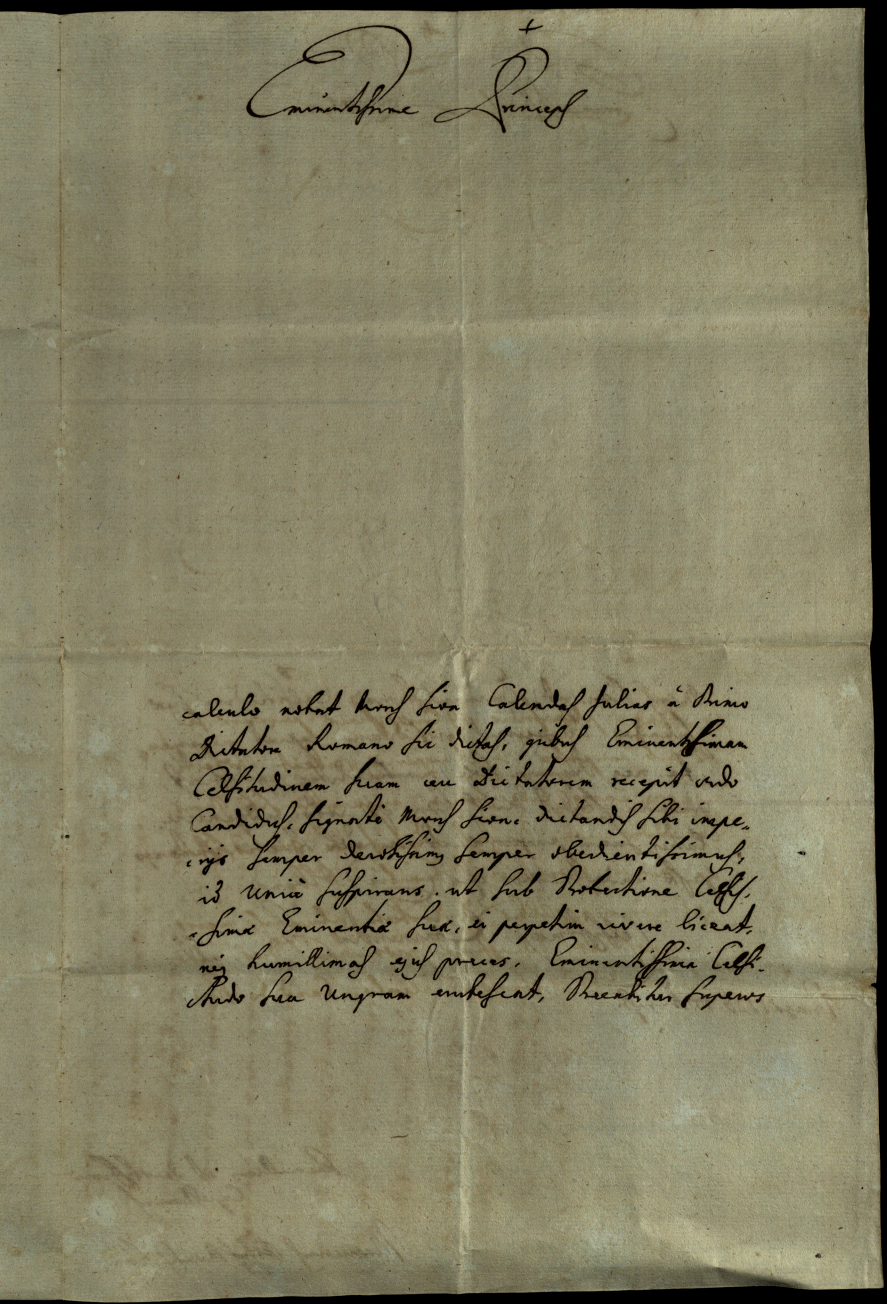 +
Eminentissime Princeps
calculo notat Mons Sion Calendas Julias à Primo
Dictatore Romano sic dictas, quibus Eminentissimam
Celsitudinem suam ceu Dictatorem recepit ordo
Candidus, signatè Mons Sion. dictandis sibi impe-
-rijs semper devotissimus semper obedientissimus,
id unicè suspirans. ut sub Protectione Celsis-
-simæ Eminentiæ suæ, ei perpetim vivere liceat,
humillimas ejus preces. Eminentissima Celsi-
tudo sua superos